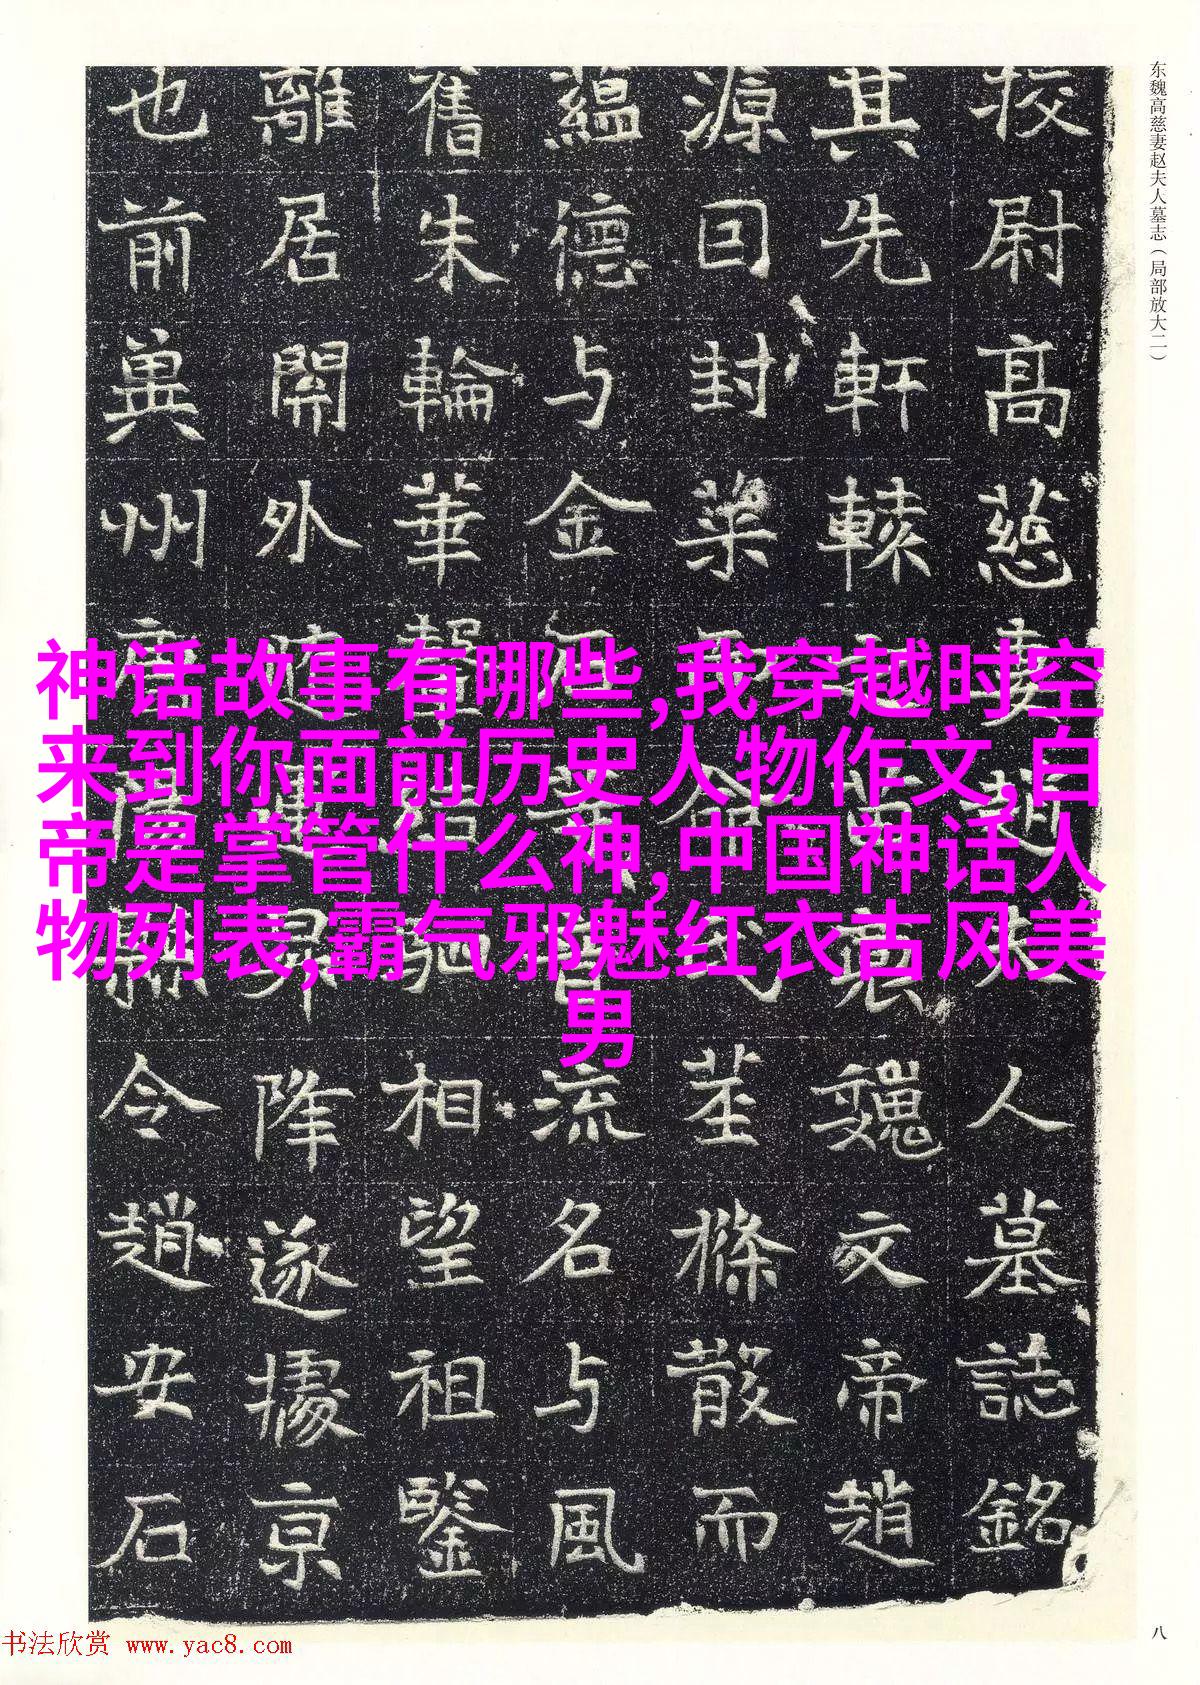 东魏高慈妻赵夫人墓志（局部放大二）
校尉高慈妻趙夫人墓誌銘
其先軒轅苗裔魏文帝趙
源囙封命氏茎條散而
蘊德与金流名与風
舊朱輪華轂駟相望祖鑒
離居開外昇降遂據京
也前冀州令趙安石
神话故事有哪些,我穿越时空
来到你面前历史人物作文,白
帝是掌管什么神,中国神话人
物列表,霸气邪魅红衣古风美
男
八
书法欣赏 www.yac8.com